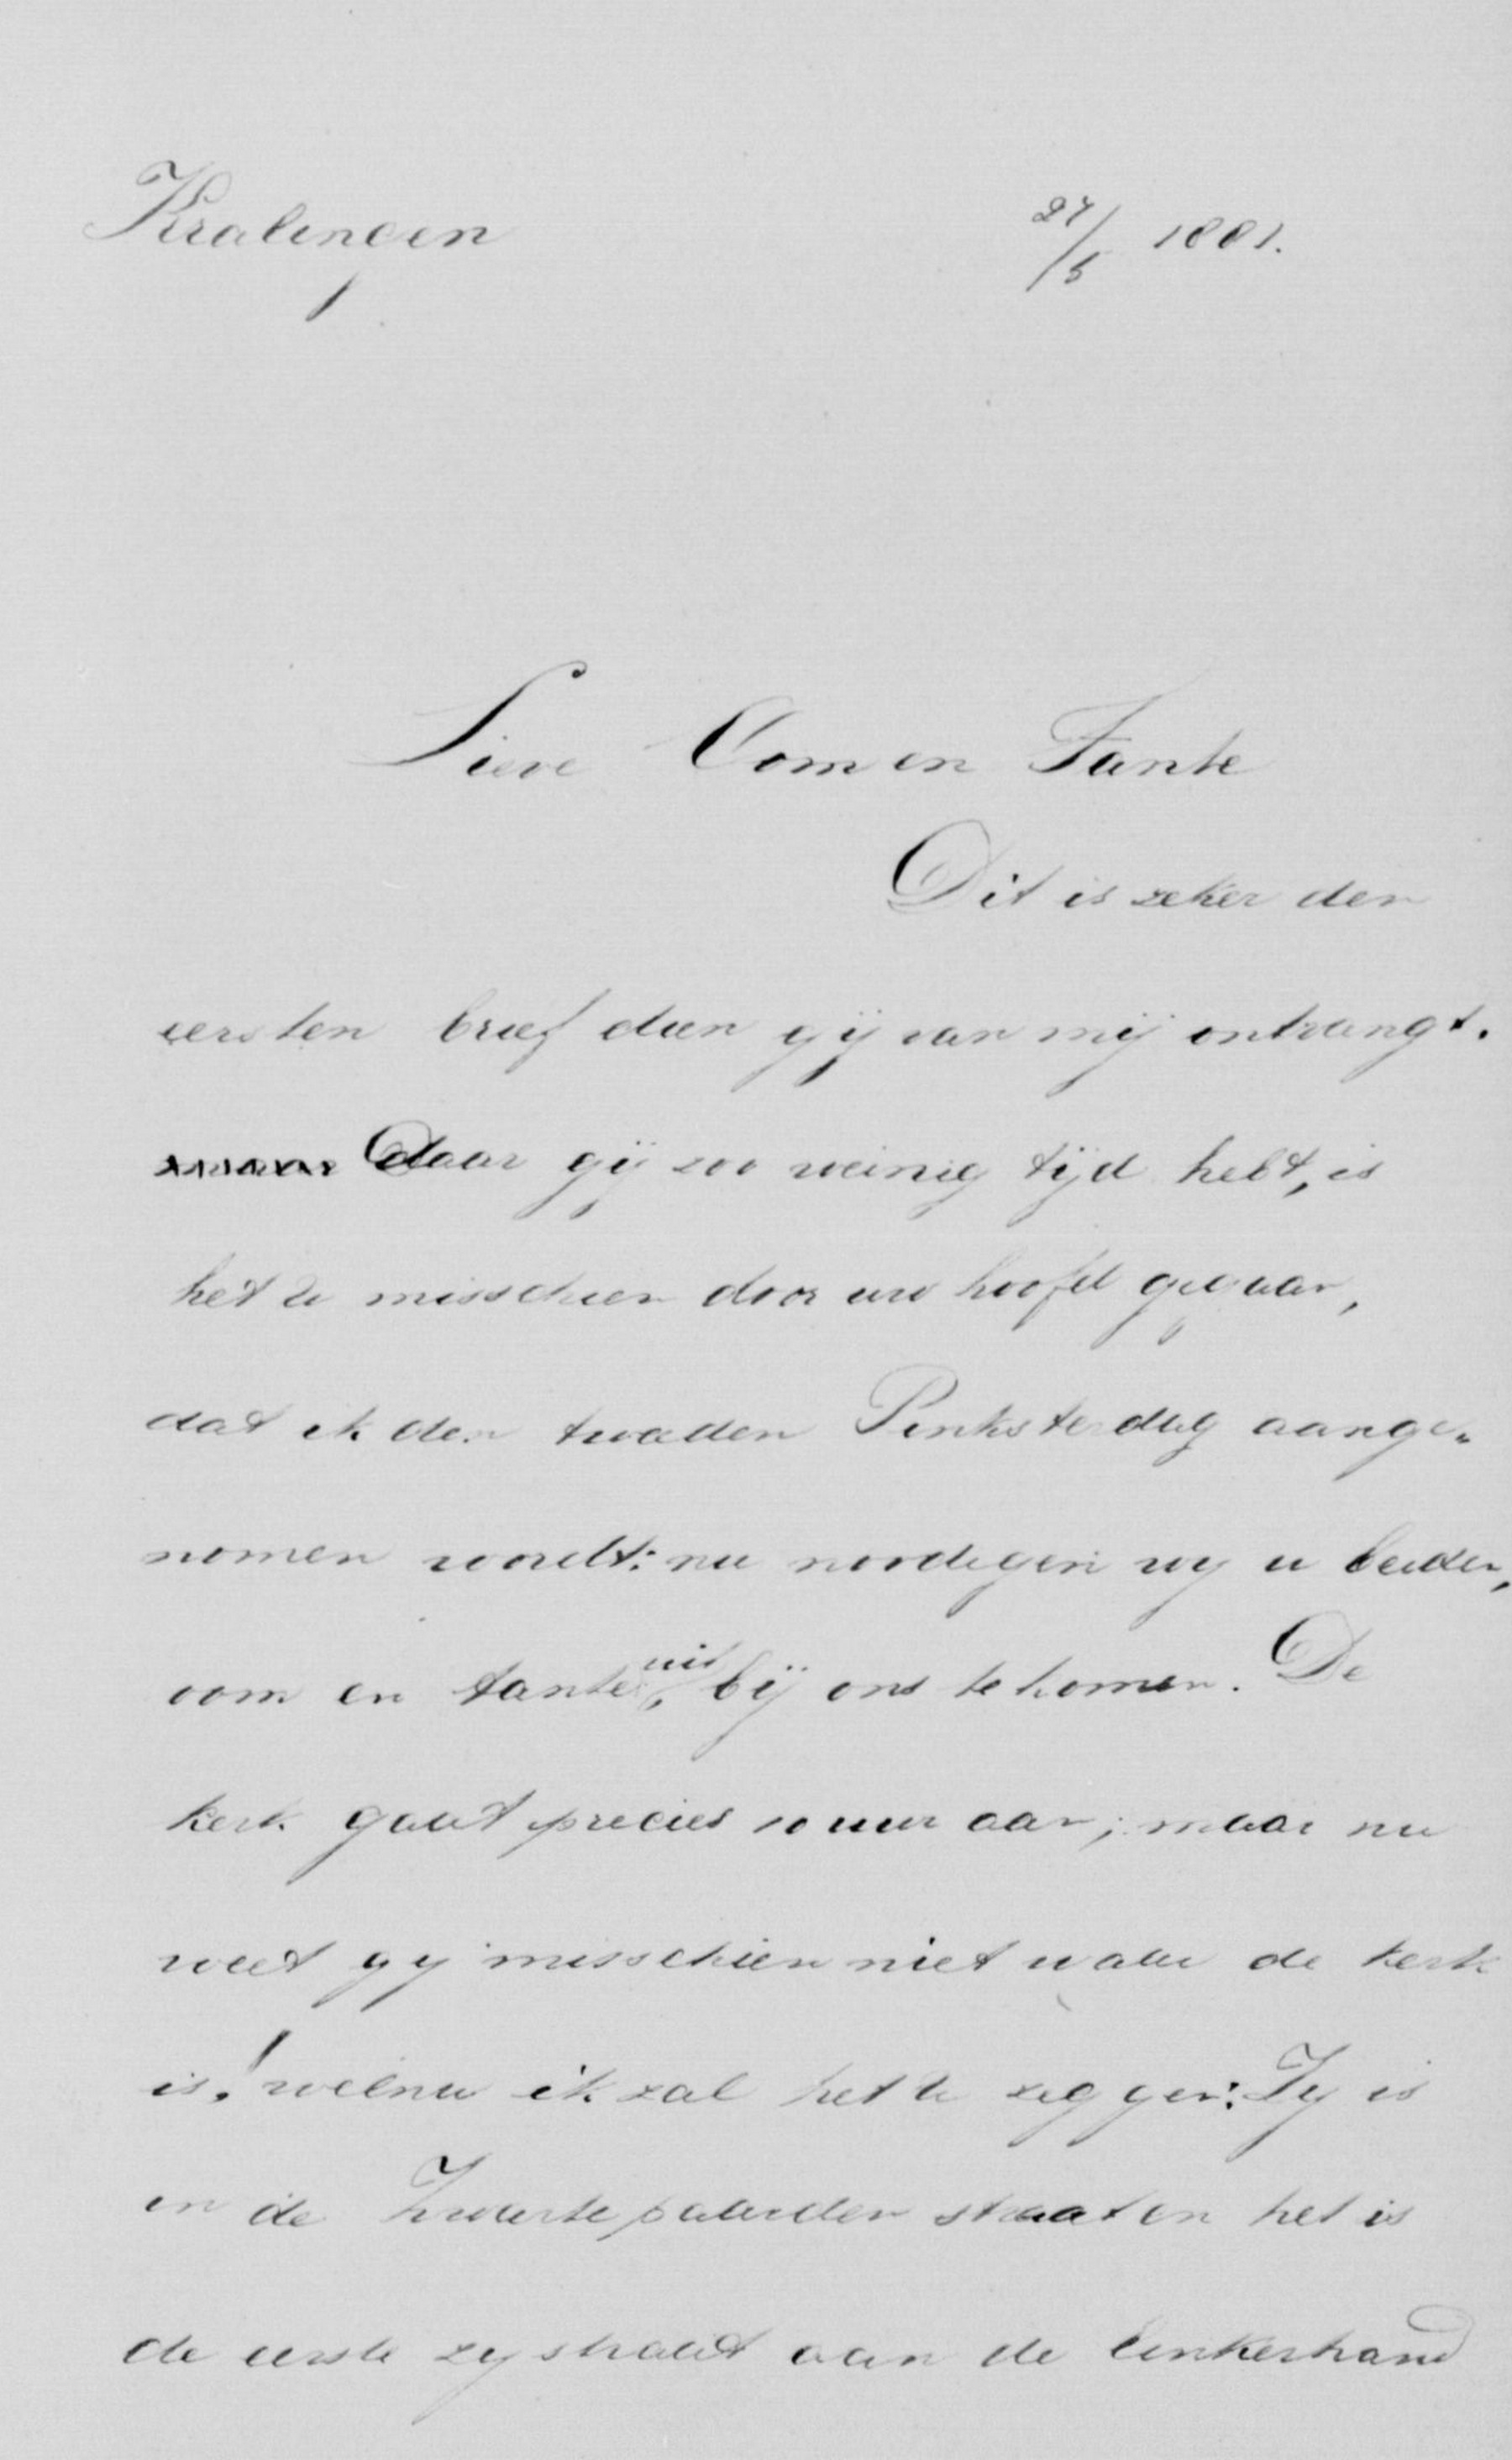 Kralingen 27/5 1881.
Lieve Oom en Tante
Dit is zeker den
eersten brief dien gij van mij ontvangt.
Daar gij zoo weinig tijd hebt, is
het U misschien door uw hoofd gegaan,
dat ik den tweeden Pinksterdag aange„
nomen wordt: nu noodigen wy u beiden,
oom en tante, uit bij ons te komen. De
kerk gaat precies 10 uur aan; maar nu
weet gy misschien niet waar de kerk
is! welnu ik zal het U zeggen: Zy is
in de Zwarte paarden straat en het is
de eerste zystraat aan de linkerhand